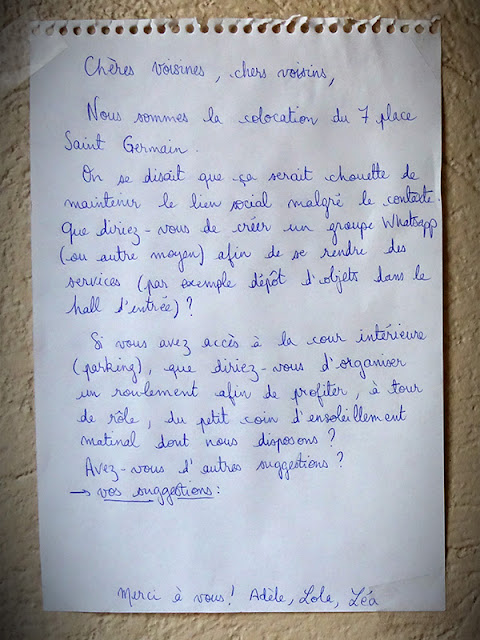 Chères voisines, chers voisins,
Nous sommes la colocation du 7 place
Saint Germain.
On se disait que ça serait chouette de
maintenir le lien social malgré le contexte.
Que diriez-vous de créer un groupe Whatsapp
(ou autre moyen) afin de se rendre des
services (par exemple dépôt d'objets dans le
hall d'entrée) ?
Si vous avez accès à la cour intérieure
(parking), que diriez-vous d'organiser
un roulement afin de profiter, à tour
de rôle, du petit coin d'ensoleillement
matinal dont nous disposons ?
Avez-vous d'autres suggestions ?
→ vos suggestions :
Merci à vous! Adèle, Lola, Léa